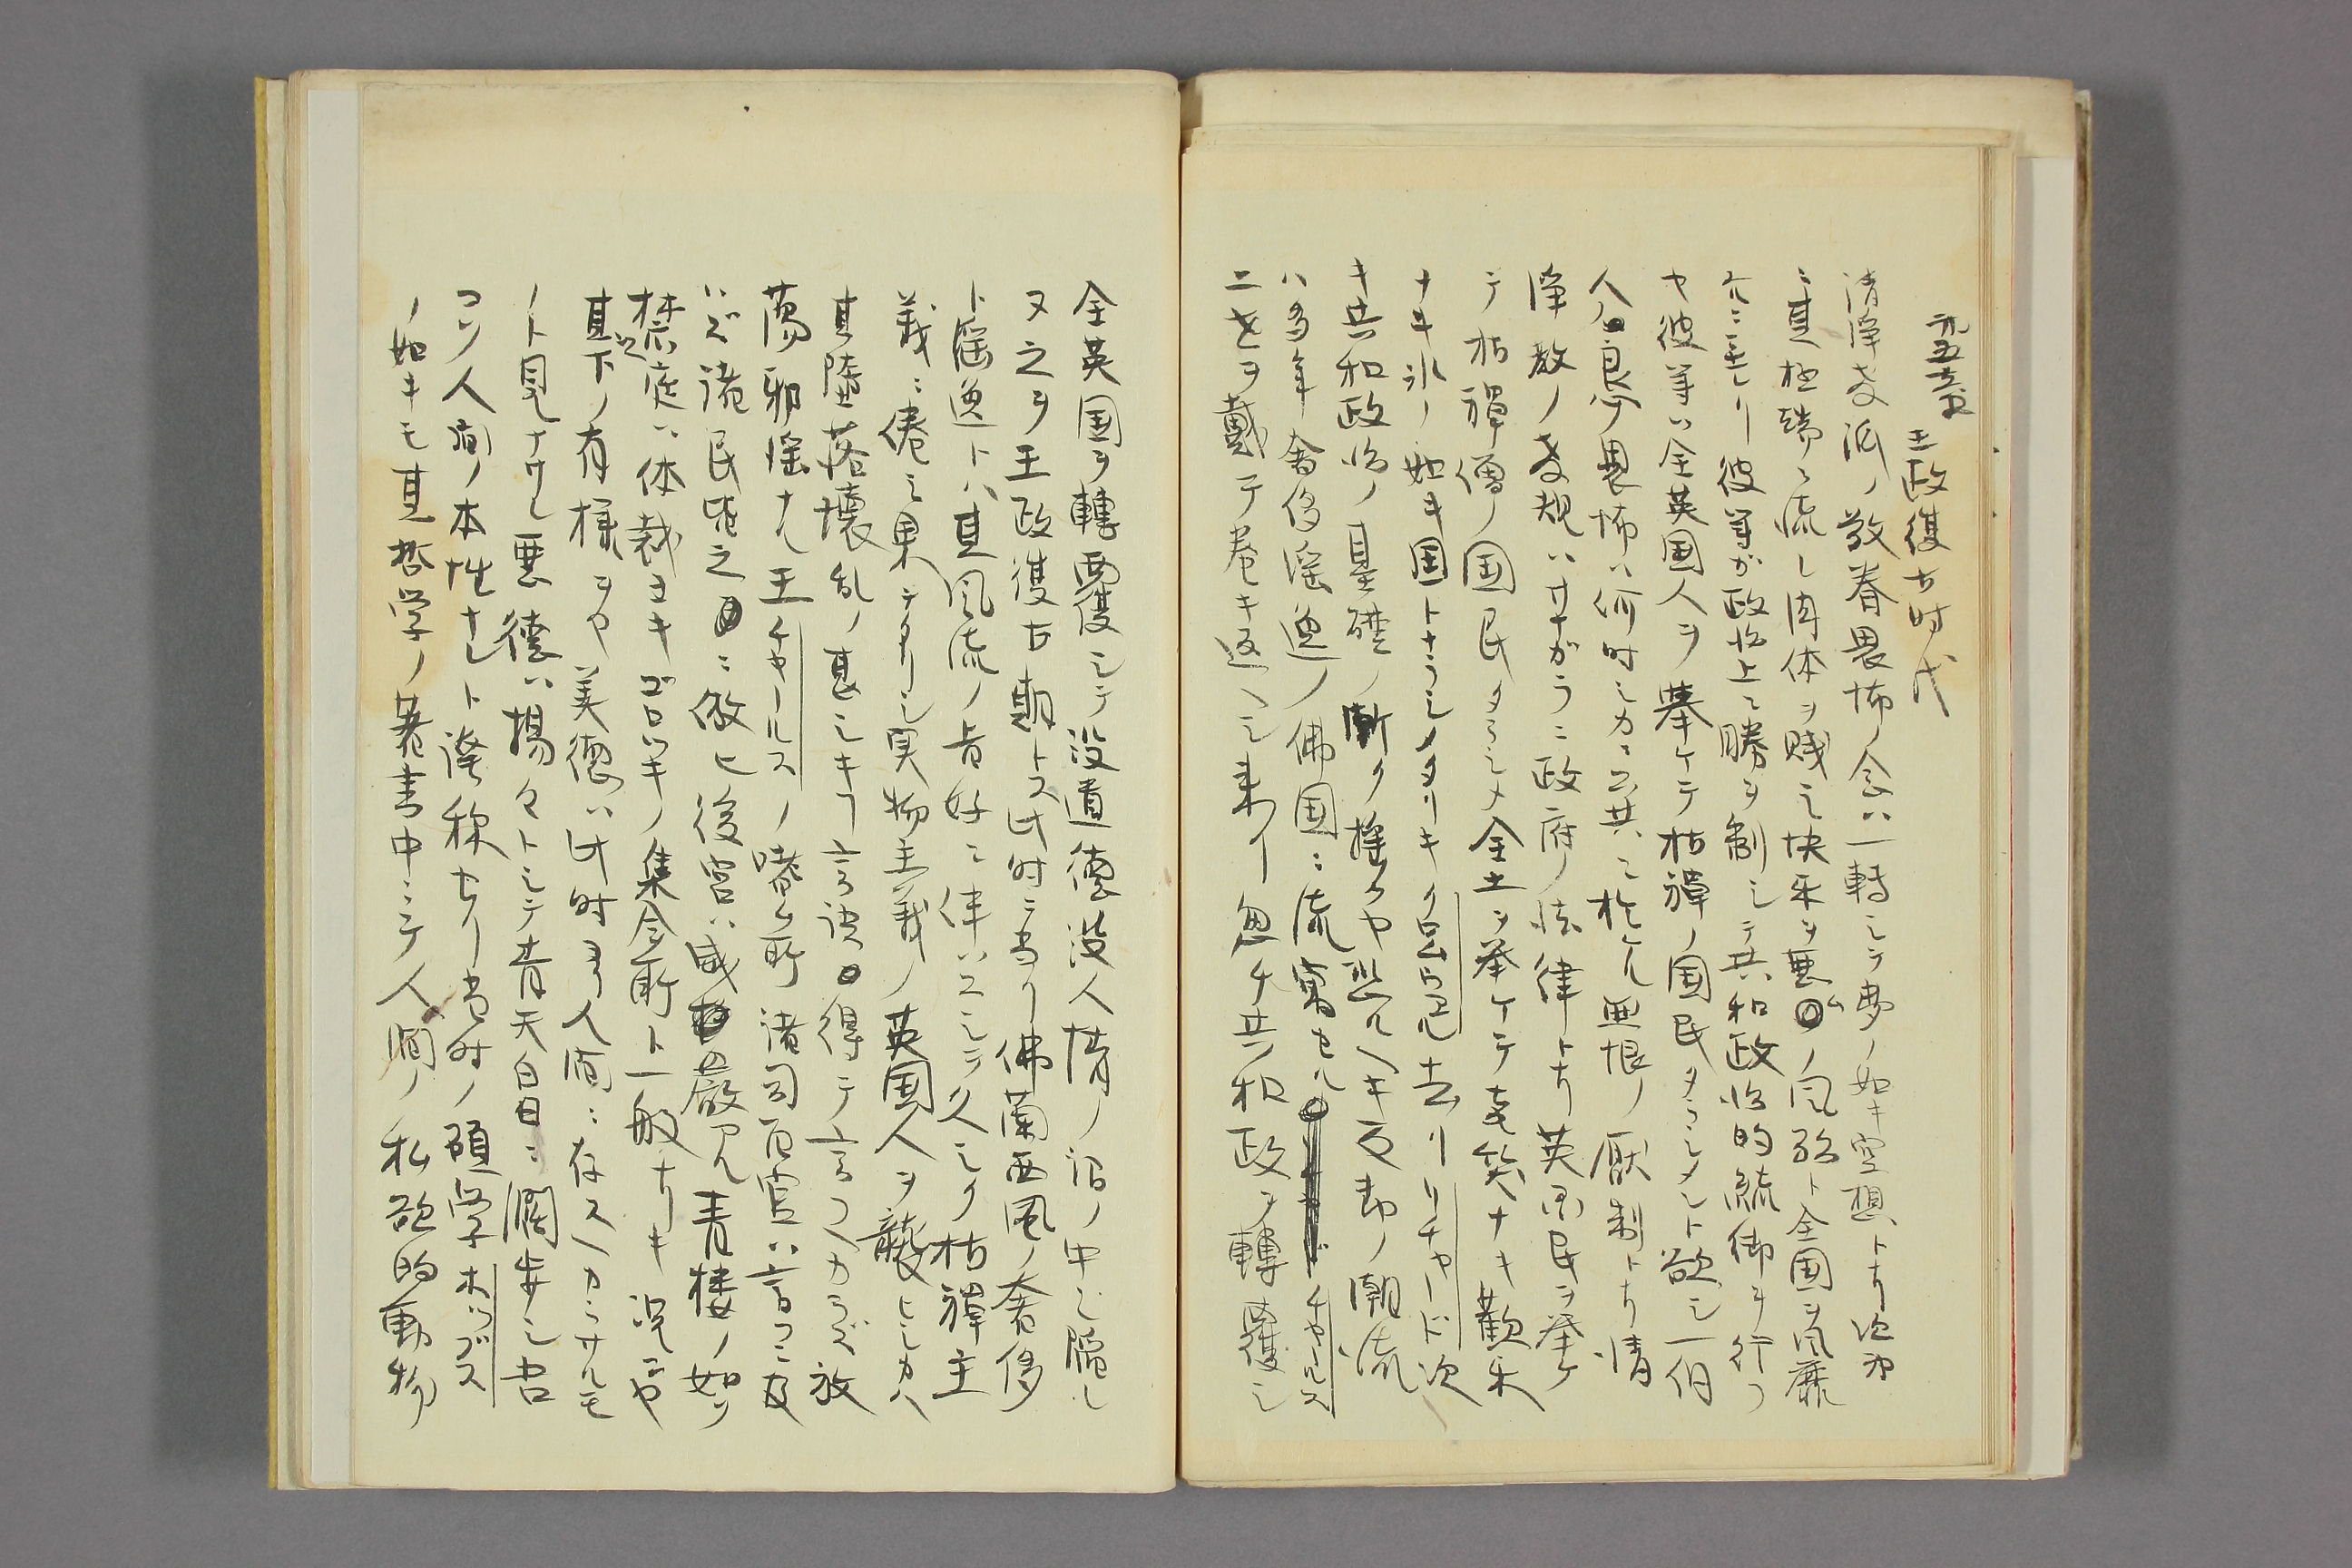 第五章
王政復古時代
清浄教派ノ敬眷畏怖ノ念ハ一轉シテ夢ノ如キ空想トナリ次第
ニ其極端ニ流レ肉体ヲ賤シ快楽ヲ悪ムノ風弥ト全国ヲ風靡
スルニ至レリ彼等ガ政治上ニ勝ヲ制シテ共和政治的統御ヲ行フ
ヤ彼等ハ全英国人ヲ挙ケテ枯禅ノ国民タラシメント欲シ一個
人ノ良心畏怖ハ何時シカニ公共ニ於ケル無限ノ厭制トナリ清
浄教ノ教規ハサナガラニ政府ノ法律トナリ英国民ヲ挙ケ
テ枯禅僧ノ国民タラシメ全土ヲ挙ケテ笑ナキ歓楽
ナキ氷ノ如キ国トナラシメタリキクロムウエル去リリチャード次
キ共和政治ノ基礎ノ漸ク揺クヤ恐ルヘキ反動ノ潮流
ハ多年奢侈淫逸ノ佛国ニ流寓セルチャールス
二世ヲ戴テ巻キ返ヘシ来リ忽チ共和政ヲ轉覆シ
全英国ヲ轉覆シテ没道徳没人情ノ沼ノ中ニ陥レ
ヌ之ヲ王政復古期トス此時ニ当リ佛蘭西風ノ奢侈
ト淫逸トハ其風流ノ嗜好ニ伴ハレテ久シク枯禅主
義ニ倦ミ果テタリシ実物主義ノ英国人ヲ襲ヒシカハ
其墮落壊乱ノ甚シキコト言語得テ言フヘカラズ放
蕩邪淫ナル王チャールスノ啓ク所諸司百官ハ言フニ及
ハズ諸民皆之ニ倣ヒ後宮ハ威厳アル青楼ノ如ク
禁庭ハ体裁ヨキゴロツキノ集会所ト一般ナリキ況ンヤ
其下ノ有様ヲヤ美徳ハ此時ヨリ人間ニ存スヘカラサルモ
ノト見ナサレ悪徳ハ揚々トシテ青天白日ニ濶歩シ吾
コソ人間ノ本性ナレト誇称セリ当時ノ碩学ホッブス
ノ如キモ其哲学ノ著書中ニテ人間ノ私欲的動物